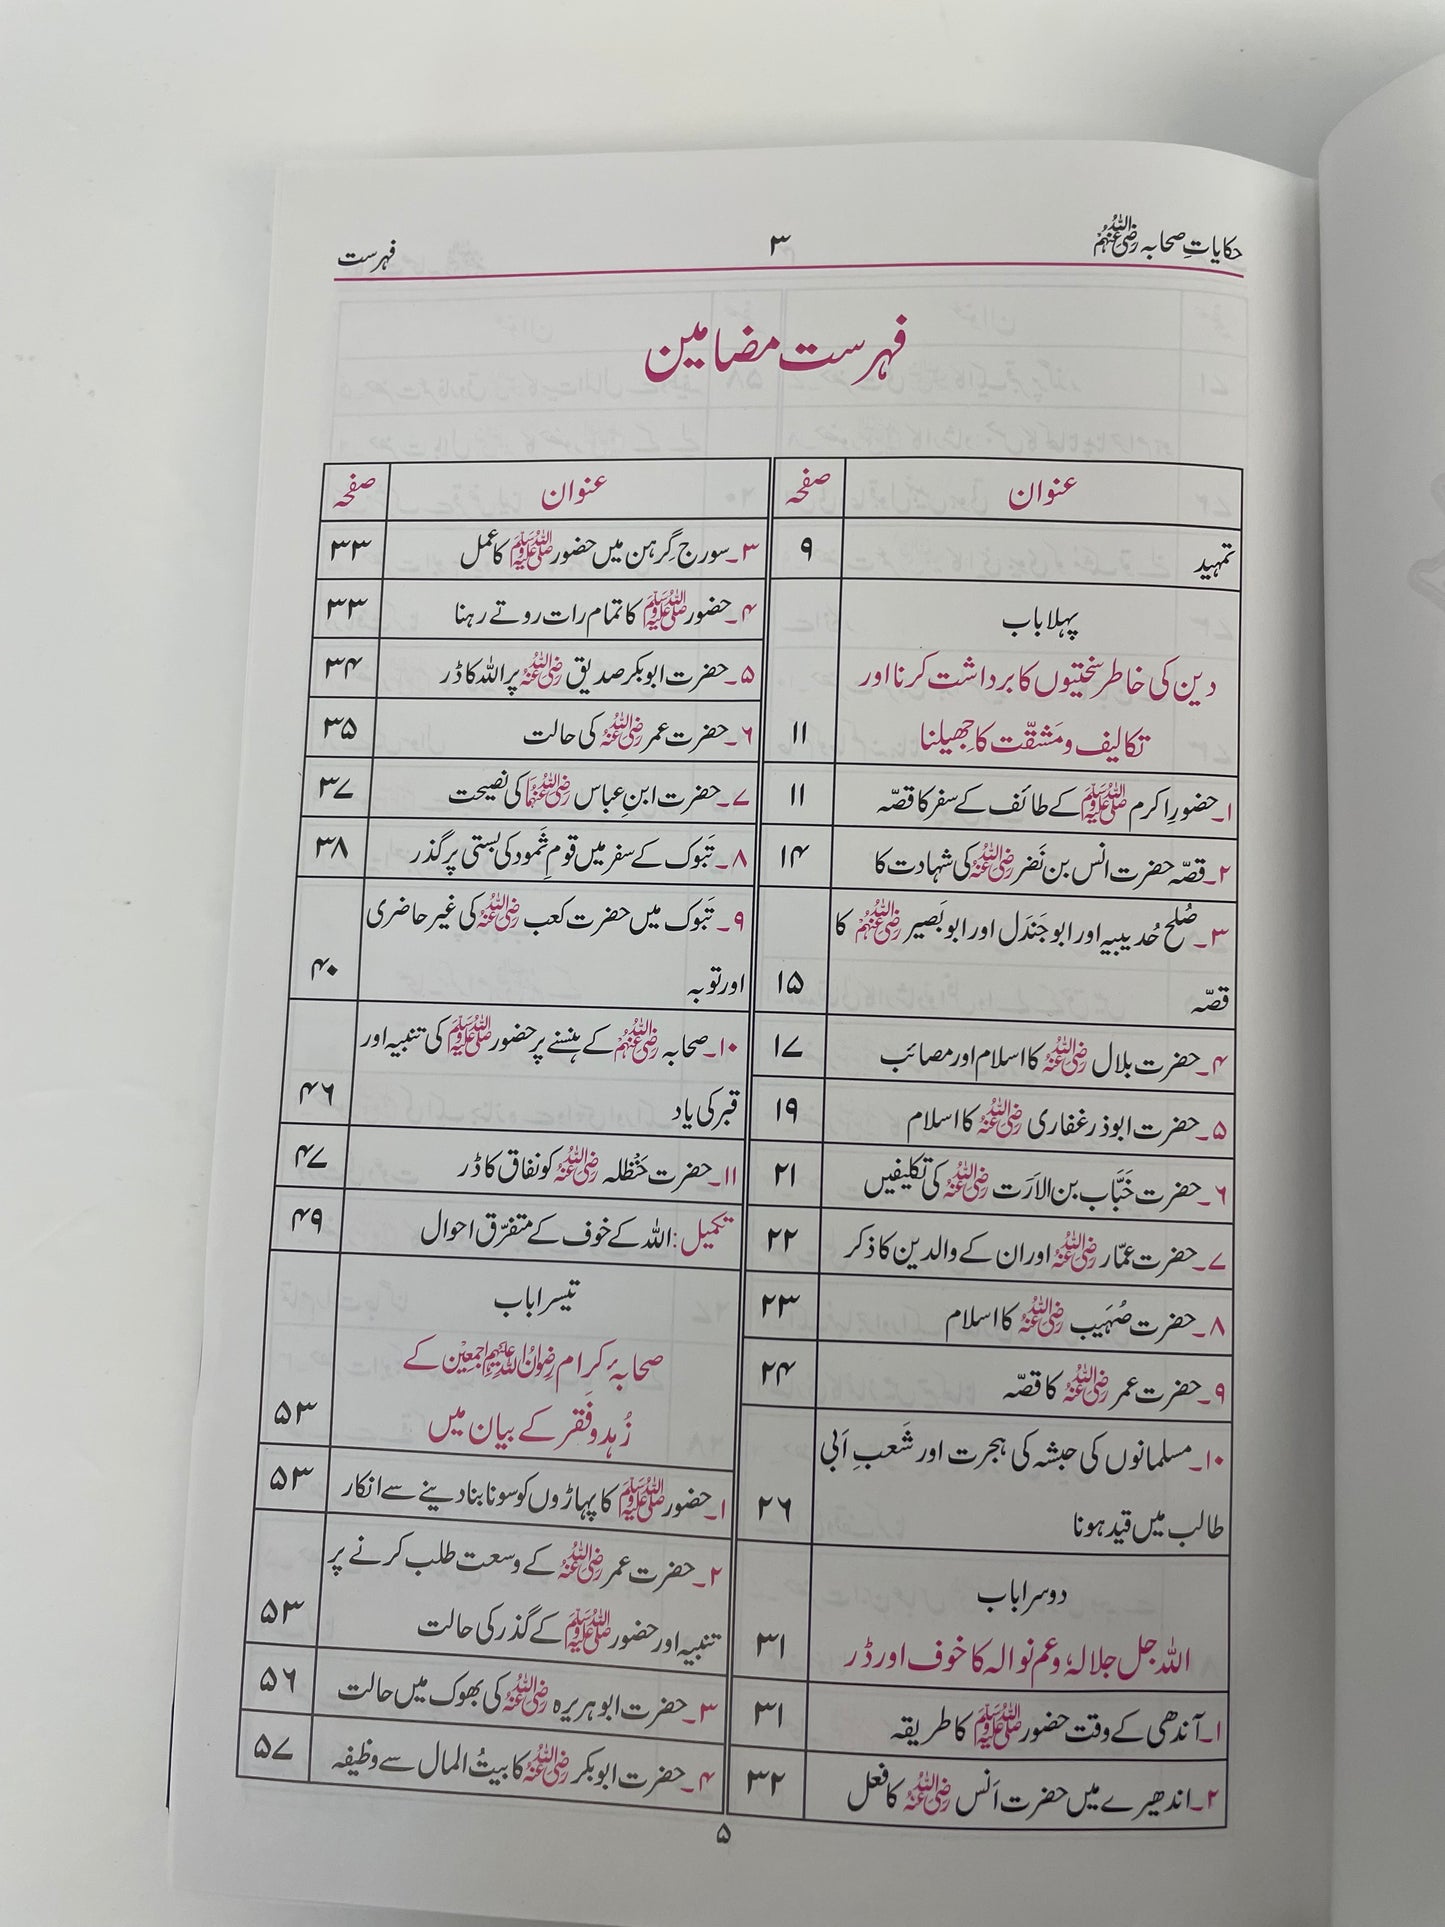 حکایاتِ صحابہ رضی اللہ عنہم
۳
فہرست
فہرست مضامین
عنوان
صفحہ
تمہید
۹
پہلا باب
دین کی خاطر سختیوں کا برداشت کرنا اور
تکالیف و مَشقّت کا جِھیلنا
۱۱
۱۔ حضورِ اکرم ﷺ کے طائف کے سفر کا قصّہ
۱۱
۲۔ قصّہ حضرت انس بن نَضر رضی اللہ عنہ کی شہادت کا
۱۴
۳۔ صُلح حُدیبیہ اور ابو جَندَل اور ابو بَصیر رضی اللہ عنہم کا
قصّہ
۱۵
۴۔ حضرت بلال رضی اللہ عنہ کا اسلام اور مصائب
۱۷
۵۔ حضرت ابوذر غفاری رضی اللہ عنہ کا اسلام
۱۹
۶۔ حضرت خَبَّاب بن الارَت رضی اللہ عنہ کی تکلیفیں
۲۱
۷۔ حضرت عمّار رضی اللہ عنہ اور ان کے والدین کا ذکر
۲۲
۸۔ حضرت صُہَیب رضی اللہ عنہ کا اسلام
۲۳
۹۔ حضرت عمر رضی اللہ عنہ کا قصّہ
۲۴
۱۰۔ مسلمانوں کی حبشہ کی ہجرت اور شَعبِ اَبی
طالب میں قید ہونا
۲۶
دوسرا باب
اللہ جل جلالہٗ و عم نوالہ کا خوف اور ڈر
۳۱
۱۔ آندھی کے وقت حضور ﷺ کا طریقہ
۳۱
۲۔ اندھیرے میں حضرت اَنس رضی اللہ عنہ کا فعل
۳۲
عنوان
صفحہ
۳۔ سورج گِرہن میں حضور ﷺ کا عمل
۳۳
۴۔ حضور ﷺ کا تمام رات روتے رہنا
۳۳
۵۔ حضرت ابو بکر صدیق رضی اللہ عنہ پر اللہ کا ڈر
۳۴
۶۔ حضرت عمر رضی اللہ عنہ کی حالت
۳۵
۷۔ حضرت ابنِ عباس رضی اللہ عنہما کی نصیحت
۳۷
۸۔ تَبوک کے سفر میں قومِ ثَمود کی بستی پر گذر
۳۸
۹۔ تَبوک میں حضرت کعب رضی اللہ عنہ کی غیر حاضری
اور توبہ
۴۰
۱۰۔ صحابہ رضی اللہ عنہم کے ہنسنے پر حضور ﷺ کی تنبیہ اور
قبر کی یاد
۴۶
۱۱۔ حضرت حَنْظلہ رضی اللہ عنہ کو نفاق کا ڈر
۴۷
تکمیل: اللہ کے خوف کے متفرّق احوال
۴۹
تیسرا باب
صحابۂ کرام رضوان اللہ علیہم اجمعین کے
زُہد و فَقر کے بیان میں
۵۳
۱۔ حضور ﷺ کا پہاڑوں کو سونا بنا دینے سے انکار
۵۳
۲۔ حضرت عمر رضی اللہ عنہ کے وسعت طلب کرنے پر
تنبیہ اور حضور ﷺ کے گذر کی حالت
۵۳
۳۔ حضرت ابو ہریرہ رضی اللہ عنہ کی بھوک میں حالت
۵۶
۴۔ حضرت ابو بکر رضی اللہ عنہ کا بیتُ المال سے وظیفہ
۵۷
۵